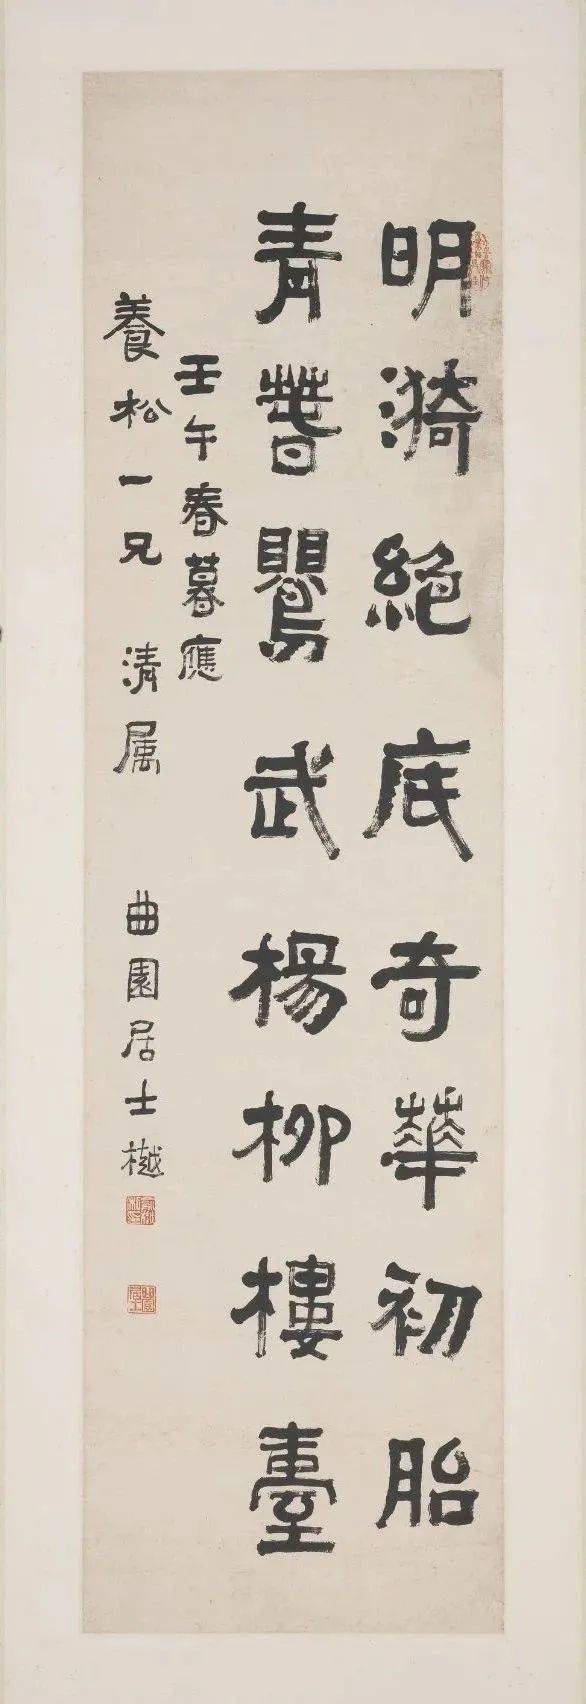 明漪絕底奇華初胎
青萅鸚武楊柳樓臺
壬午春暮應
養松一兄 清屬 曲園居士樾